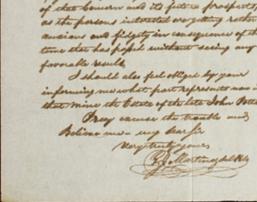 of that Concern and its future prospects,
as the persons interested are getting rather
anxious and fidgety in consequence of the
time that has passed without seeing any
favorable result.
I should also feel obliged by your
informing me what part represents now in
that mine the Estate of the late John Potts
Pray excuse the trouble and
Believe me my dear Sir
Very truly yours
Martinez del Rio